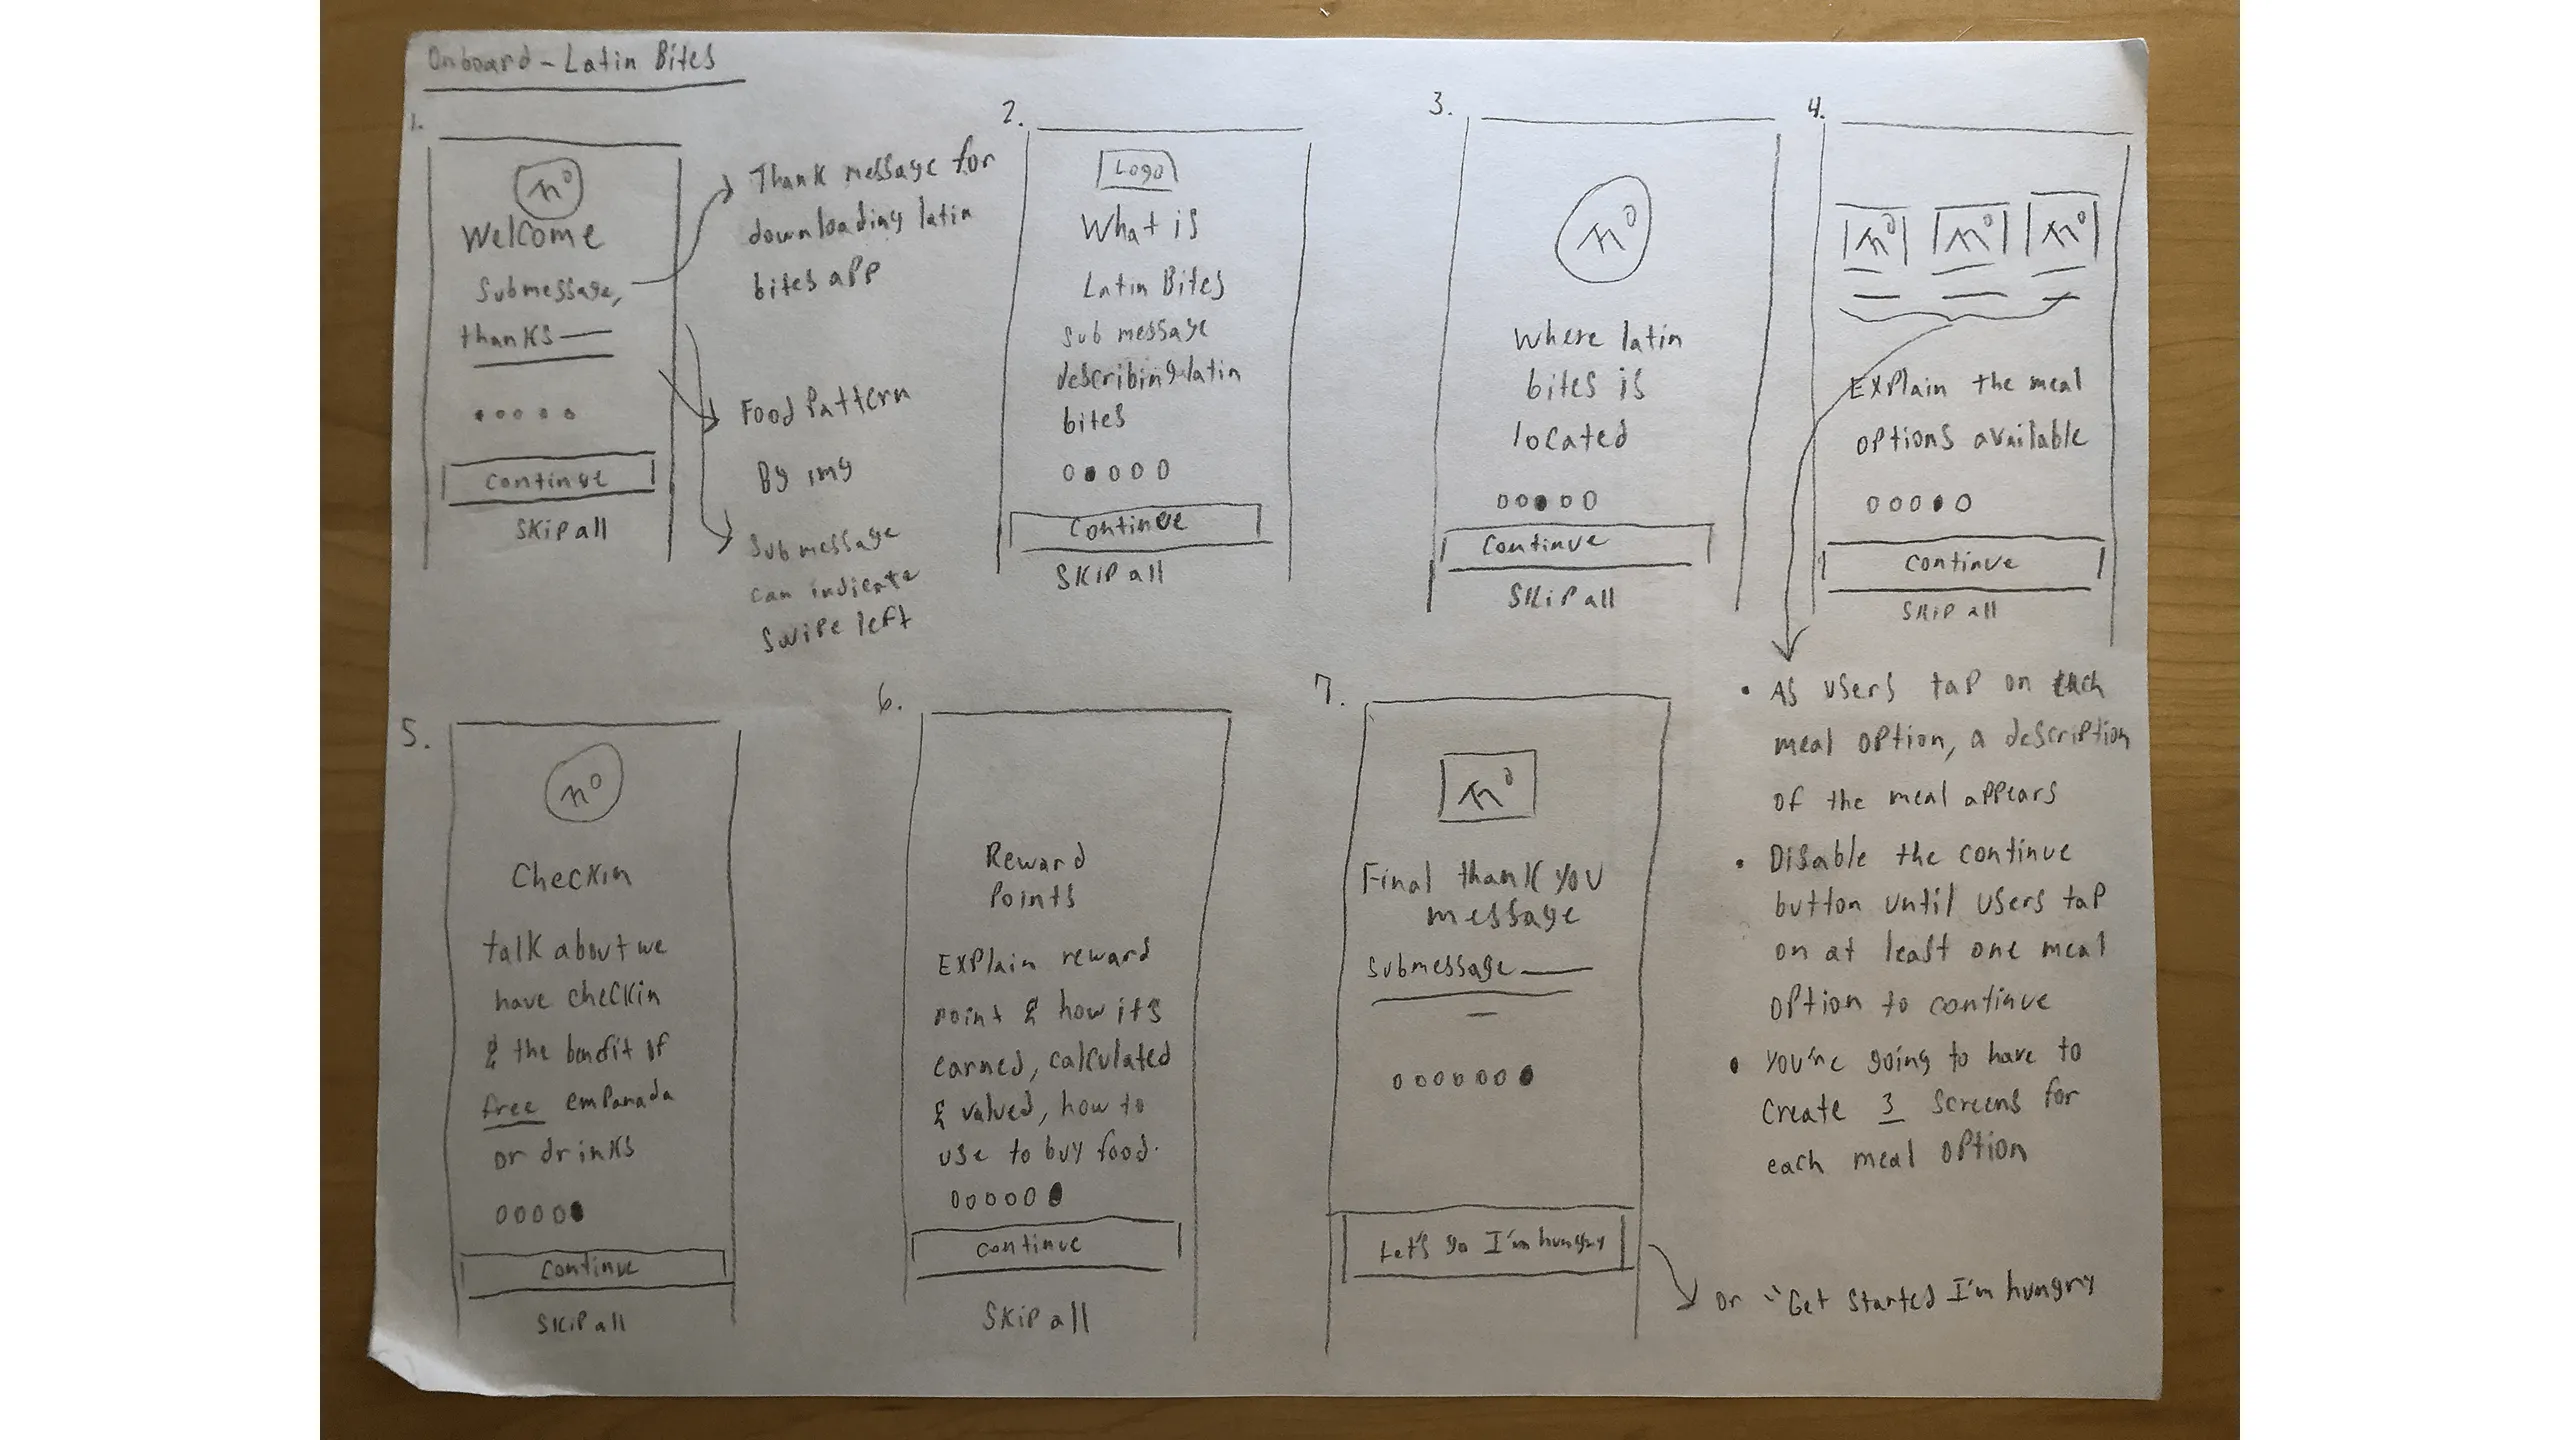 Onboard - Latin Bites
1.
Welcome
Submessage,
thanks
Continue
Skip all
Thank message for
downloading latin
bites app
Food Pattern
Bg img
Submessage
can indicate
swipe left
2.
Logo
What is
Latin Bites
sub message
describing latin
bites
Continue
Skip all
3.
Where latin
bites is
located
Continue
Skip all
4.
Explain the meal
options available
Continue
Skip all
• As users tap on each
meal option, a description
of the meal appears
• Disable the continue
button until users tap
on at least one meal
option to continue
• You're going to have to
create 3 screens for
each meal option
5.
Checkin
talk about we
have checkin
& the benefit of
free empanada
or drinks
Continue
Skip all
6.
Reward
Points
Explain reward
point & how it's
earned, calculated
& valued, how to
use to buy food.
Continue
Skip all
7.
Final thank you
message
submessage
Let's go I'm hungry
or "Get started I'm hungry